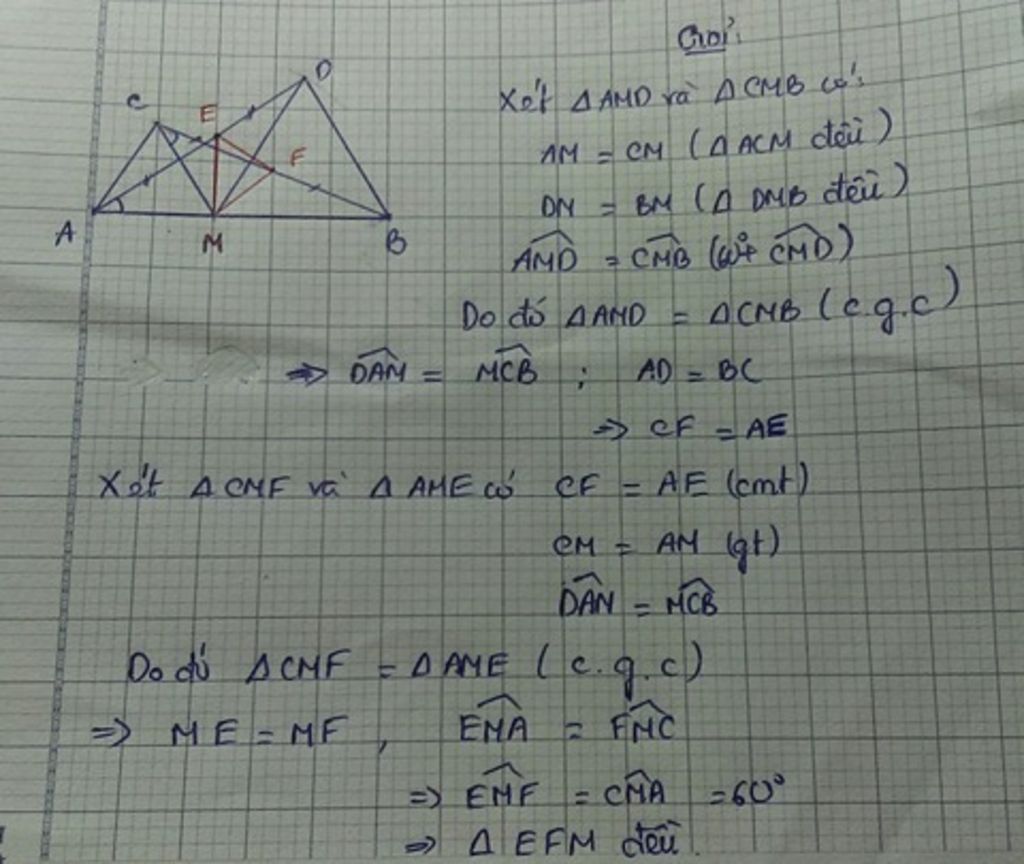 Giải:
C
E
D
F
A
M
B
Xét Δ AMD và Δ CMB có:
AM = CM (Δ ACM đều)
DM = BM (Δ DMB đều)
AMD = CMB (60° + CMD)
Do đó Δ AMD = Δ CMB (c.g.c)
⇒ DAM = MCB ; AD = BC
⇒ CF = AE
Xét Δ CMF và Δ AME có CF = AE (cmt)
CM = AM (gt)
DAM = MCB
Do đó Δ CMF = Δ AME (c.g.c)
⇒ ME = MF , EMA = FMC
⇒ EMF = CMA = 60°
⇒ Δ EFM đều.